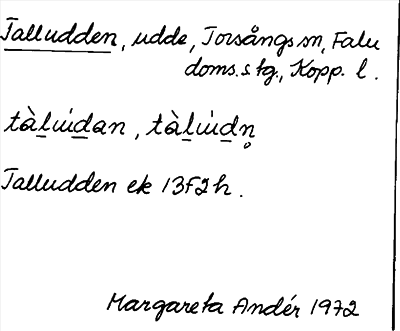 Talludden, udde, Torsångs sn, Falu
doms. s tg., Kopp. l.
tàl̲u̇d̲an, tàl̲u̇d̲n̥
Talludden ek 13F2h.
Margareta Andér 1972